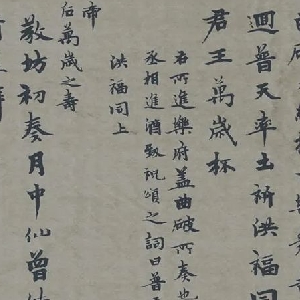 迴普天率土祈洪福同
君王萬歲杯
右所進樂府蓋曲破所奏也
丞相進酒致祝頌之詞曰普
洪福同上
帝
后萬歲之壽
教坊初奏月中仙曾